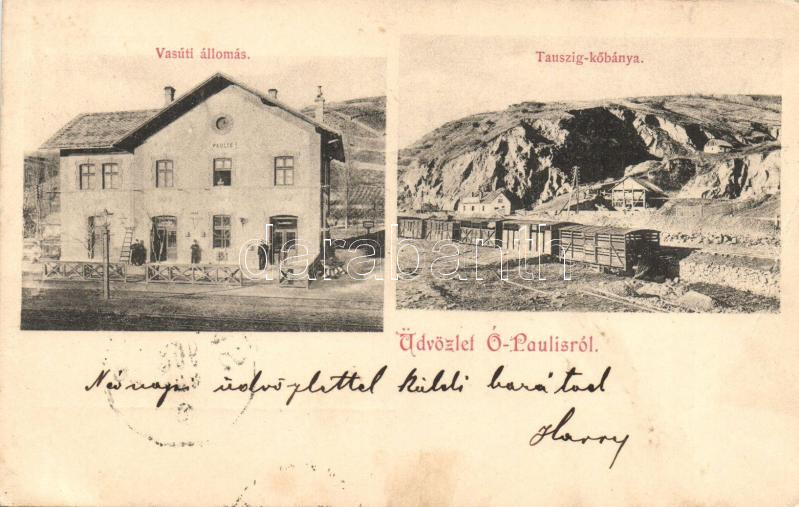 Vasúti állomás.
Tauszig-kőbánya.
PAULIS
darabanth
Üdvözlet Ó-Paulisról.
Névnapi üdvözlettel küldi barátod
Harry